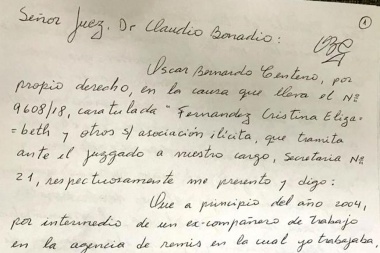 Señor Juez. Dr Claudio Bonadio:
①
Oscar Bernardo Centeno, por
propio derecho, en la causa que lleva el Nº
9608/18, caratulada "Fernandez Cristina Eliza-
=beth y otros s/ asociación ilícita, que tramita
ante el juzgado a vuestro cargo, Secretaria Nº
21, respetuosamente me presento y digo:
Que a principio del año 2004,
por intermedio de un ex-compañero de trabajo
en la agencia de remis en la cual yo trabajaba,